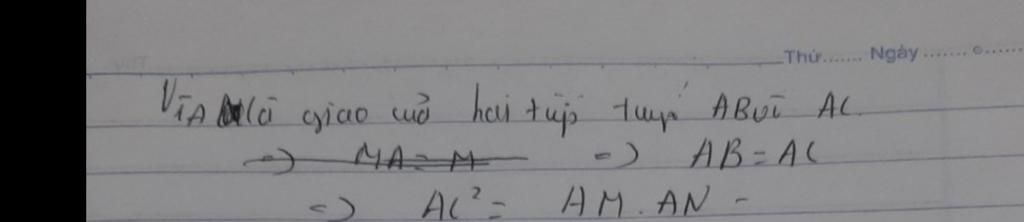 Thứ....... Ngày....... 
Vì A là giao của hai tiếp tuyến AB và AC
=> AB = AC
=> AC² = AM. AN -